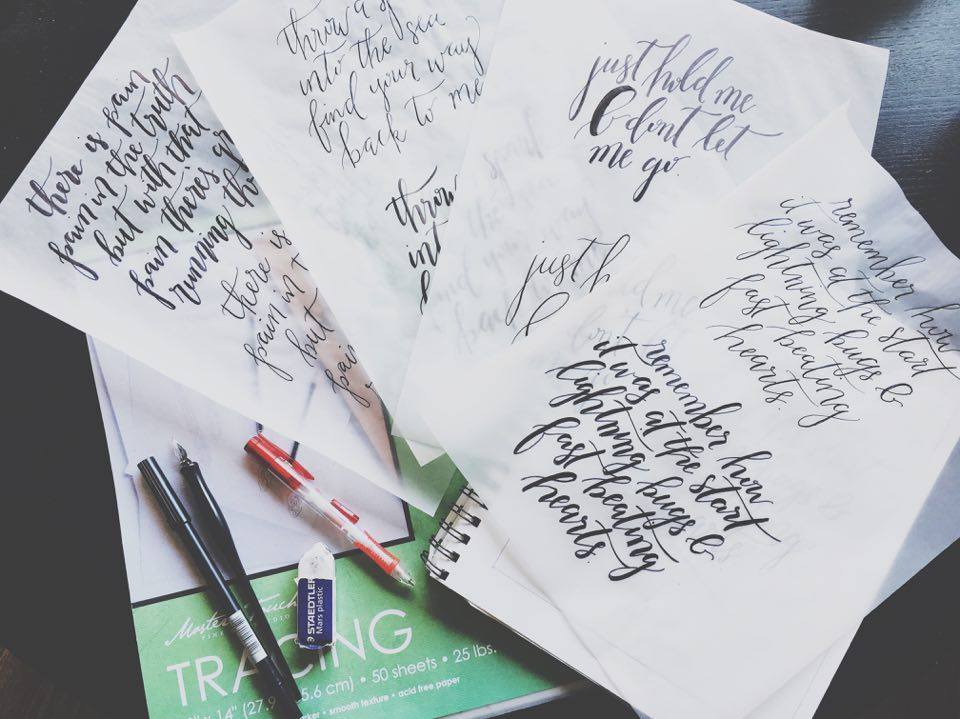 there is pain
pain in the truth
but with that
pain theres
running
there is
pain in
but
into the sea
find your way
back to me
throw
just hold me
& dont let
me go.
just
&
remember how
it was at the start
lightning bugs &
fast beating
hearts.
remember how
it was at the start
lightning bugs &
fast beating
hearts.
STAEDTLER
Mars plastic
Master's Touch
TRACING
50 sheets • 25 lbs.
• smooth texture • acid free paper